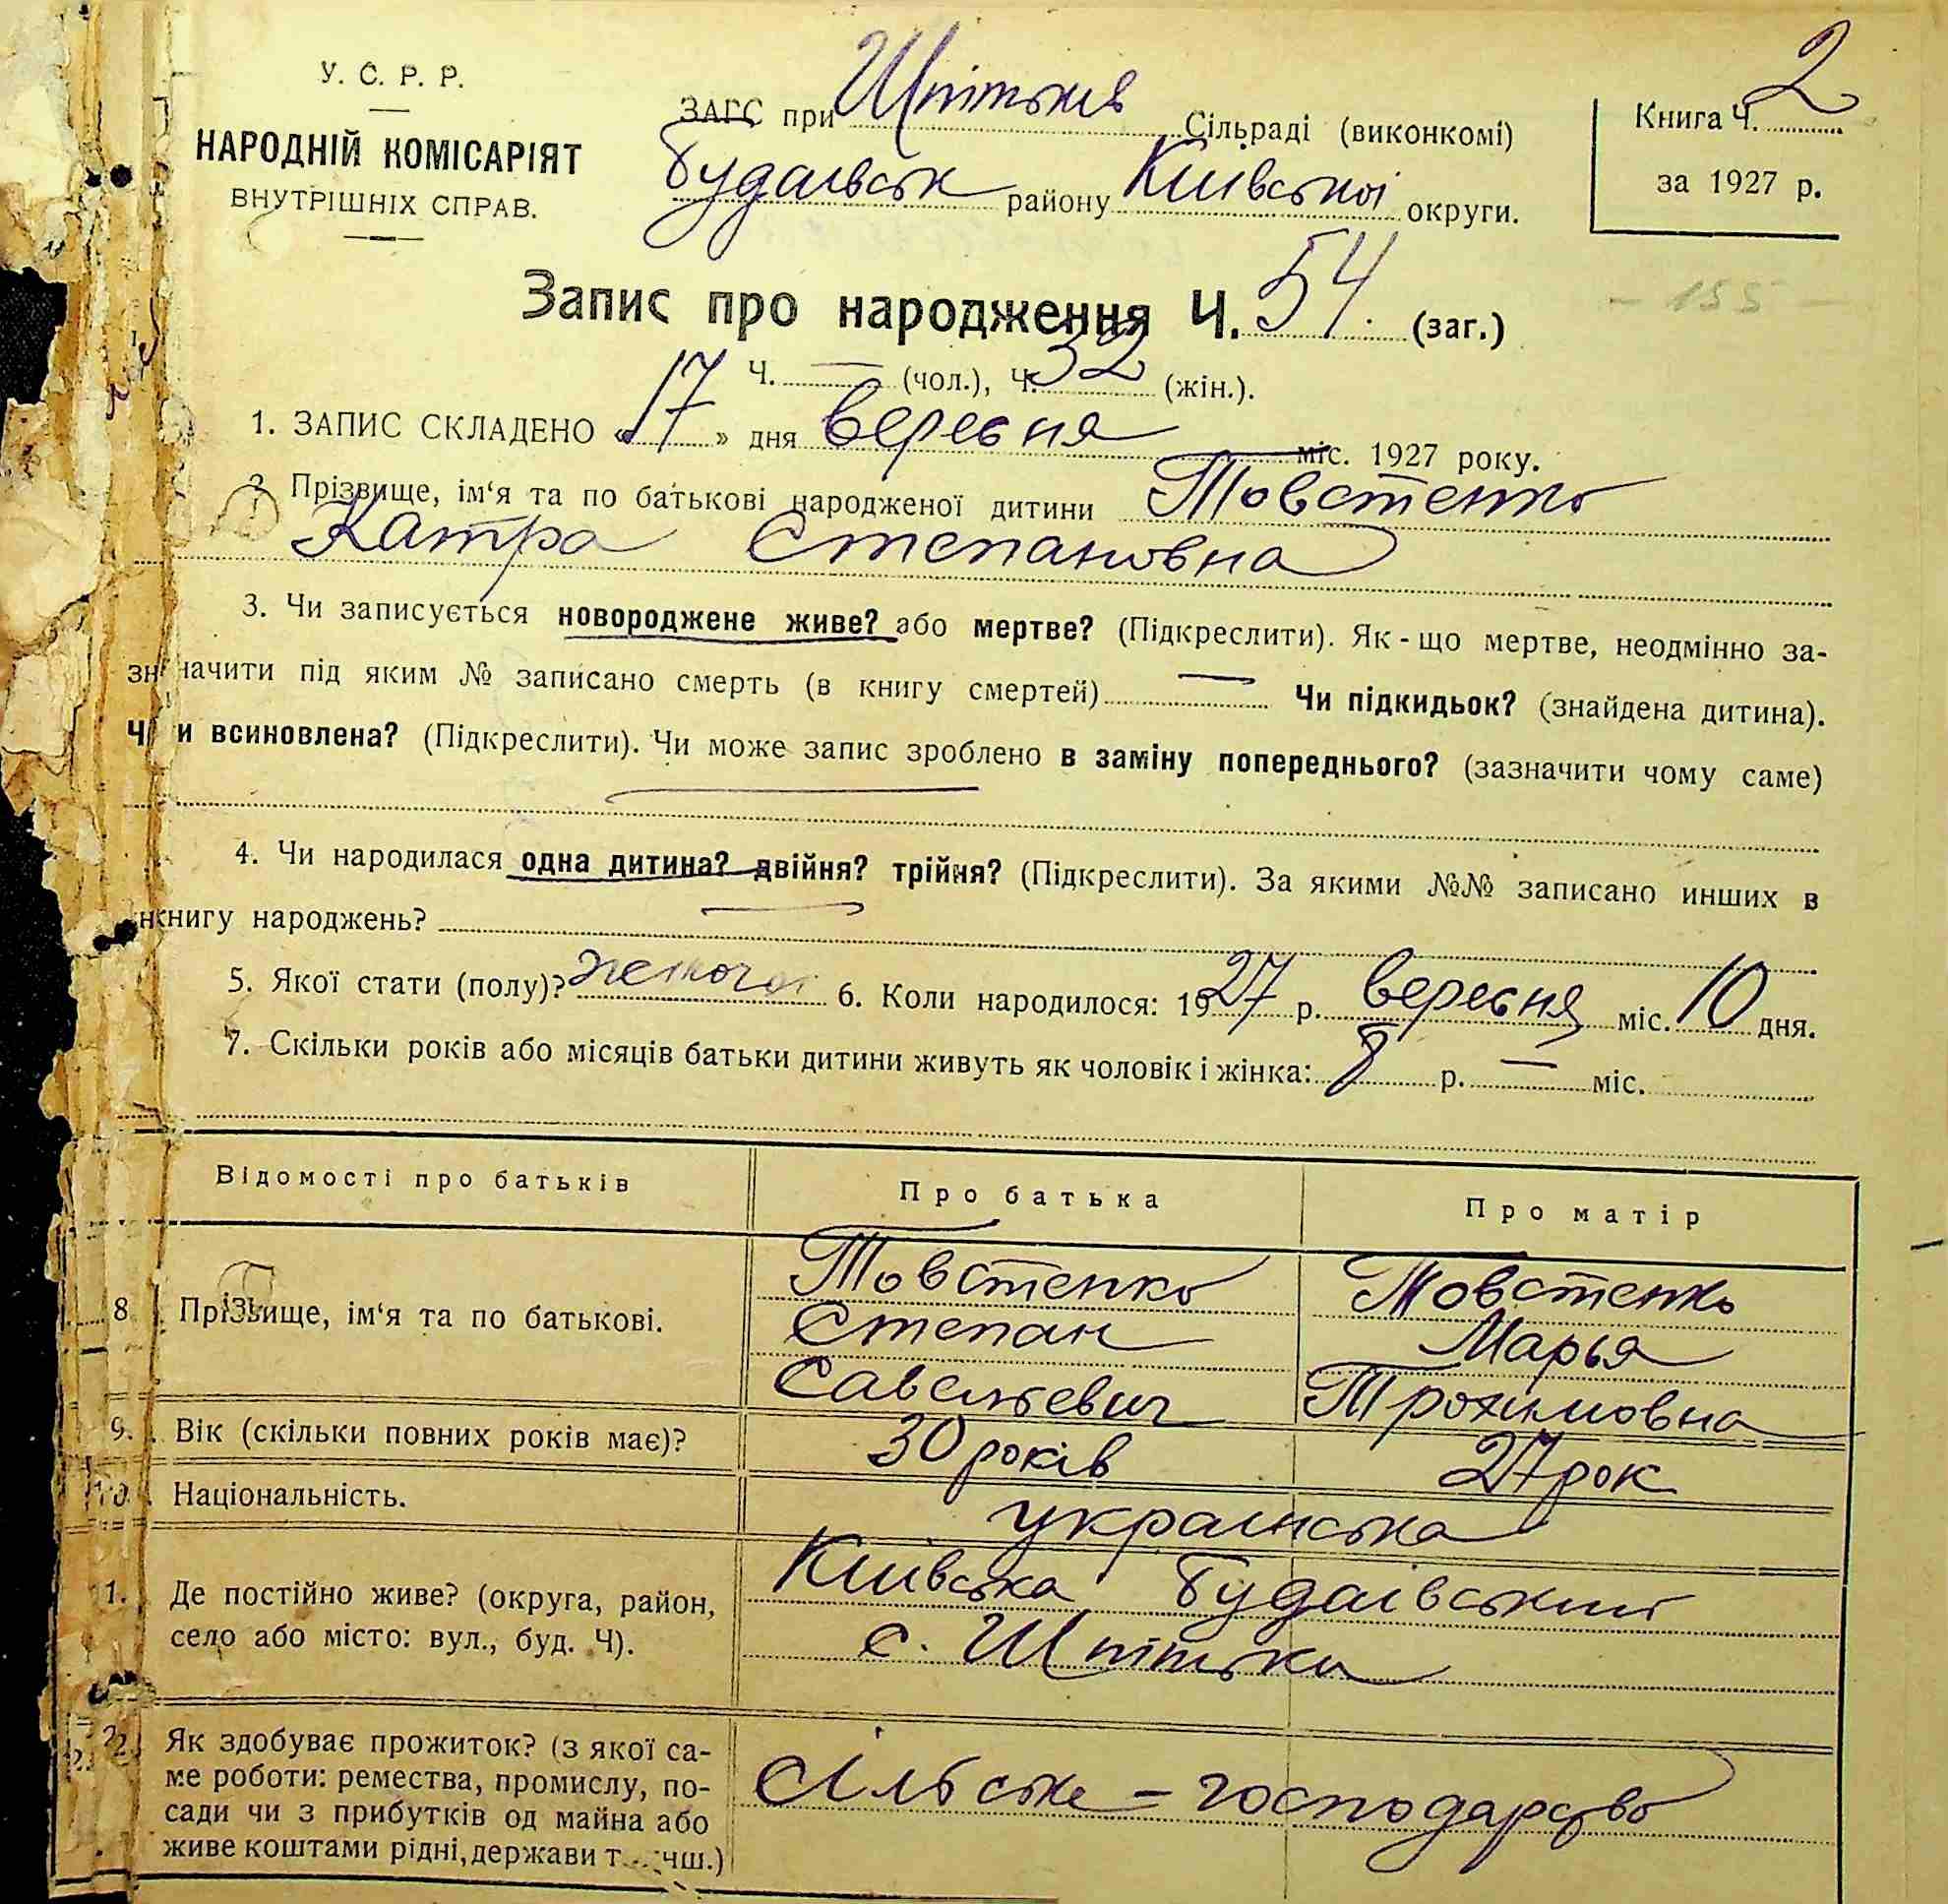 У. С. Р. Р.
НАРОДНІЙ КОМІСАРІЯТ
ВНУТРІШНІХ СПРАВ.
ЗАГС при Шпітьків Сільраді (виконкомі)
Будаївськ району Київської округи.
Книга Ч. 2
за 1927 р.
Запис про народження Ч. 54. (заг.)
- 155 -
Ч. — (чол.), Ч. 32 (жін.).
1. ЗАПИС СКЛАДЕНО «17» дня вересня міс. 1927 року.
2 Прізвище, ім‘я та по батькові народженої дитини Товстенко
Катра Степановна
3. Чи записується новороджене живе? або мертве? (Підкреслити). Як-що мертве, неодмінно за-
значити під яким № записано смерть (в книгу смертей) — Чи підкидьок? (знайдена дитина).
Чи всиновлена? (Підкреслити). Чи може запис зроблено в заміну попереднього? (зазначити чому саме)
4. Чи народилася одна дитина? двійня? трійня? (Підкреслити). За якими №№ записано инших в
книгу народжень? —
5. Якої стати (полу)? жіночої 6. Коли народилося: 1927 р. вересня міс. 10 дня.
7. Скільки років або місяців батьки дитини живуть як чоловік і жінка: 8 р. — міс.
Відомості про батьків Про батька Про матір
8. Прізвище, ім‘я та по батькові.
Товстенко Товстенко
Степан Марья
Савельевич Трохимовна
9. Вік (скільки повних років має)? 30 років 27 рок
10. Національність. українська
11. Де постійно живе? (округа, район,
село або місто: вул., буд. Ч).
Київська Будаівський
с. Шпітьки
12. Як здобуває прожиток? (з якої са-
ме роботи: ремества, промислу, по-
сади чи з прибутків од майна або
живе коштами рідні, держави т. чш.)
сільське - господарство